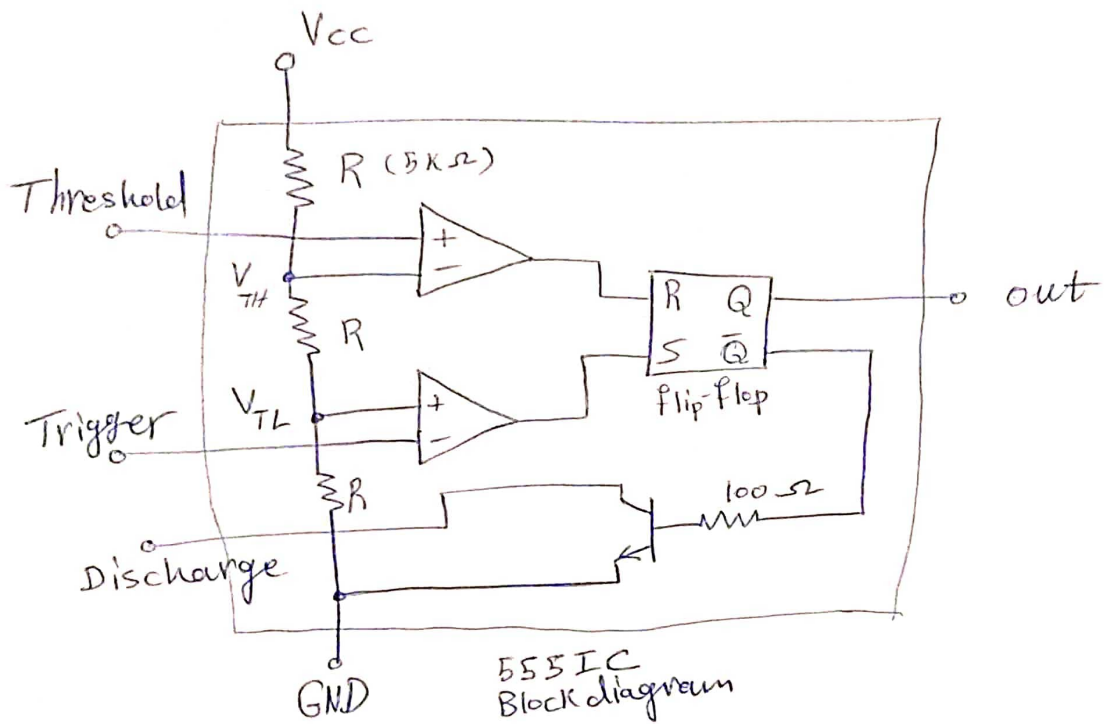 Vcc
R (5KΩ)
Threshold
+
−
V_TH
R Q
out
R
S Q̅
flip-flop
V_TL
+
Trigger
−
R
100 Ω
Discharge
555 IC
Block diagram
GND